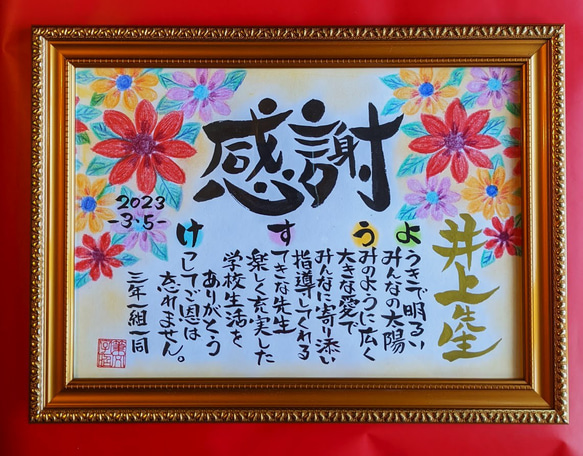 感謝
井上先生
ようきで明るい
みんなの太陽
うみのように広く
大きな愛で
みんなに寄り添い
指導してくれる
すてきな先生
楽しく充実した
学校生活を
ありがとう
けっしてご恩は
忘れません。
三年一組一同
2023
-3.5-